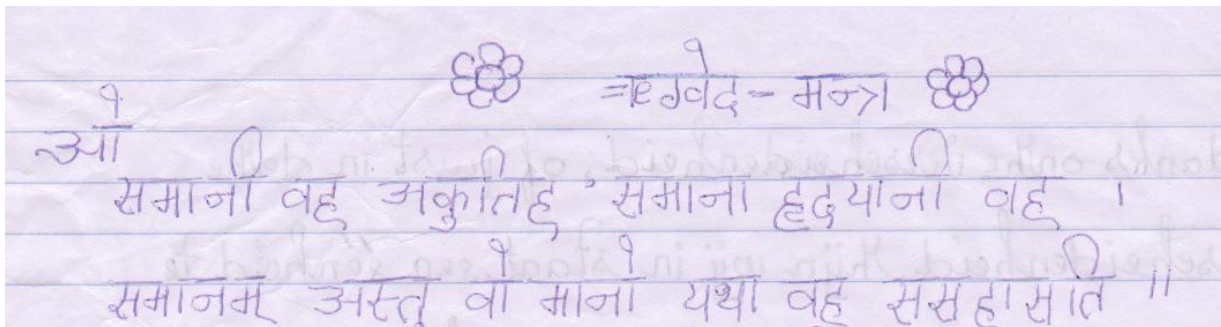 ऋगवेद - मन्त्र
ओ
समानी वह अकुतिह, समाना हृदयानी वह ।
समानम् अस्तु वो मानो यथा वह ससहासति ॥